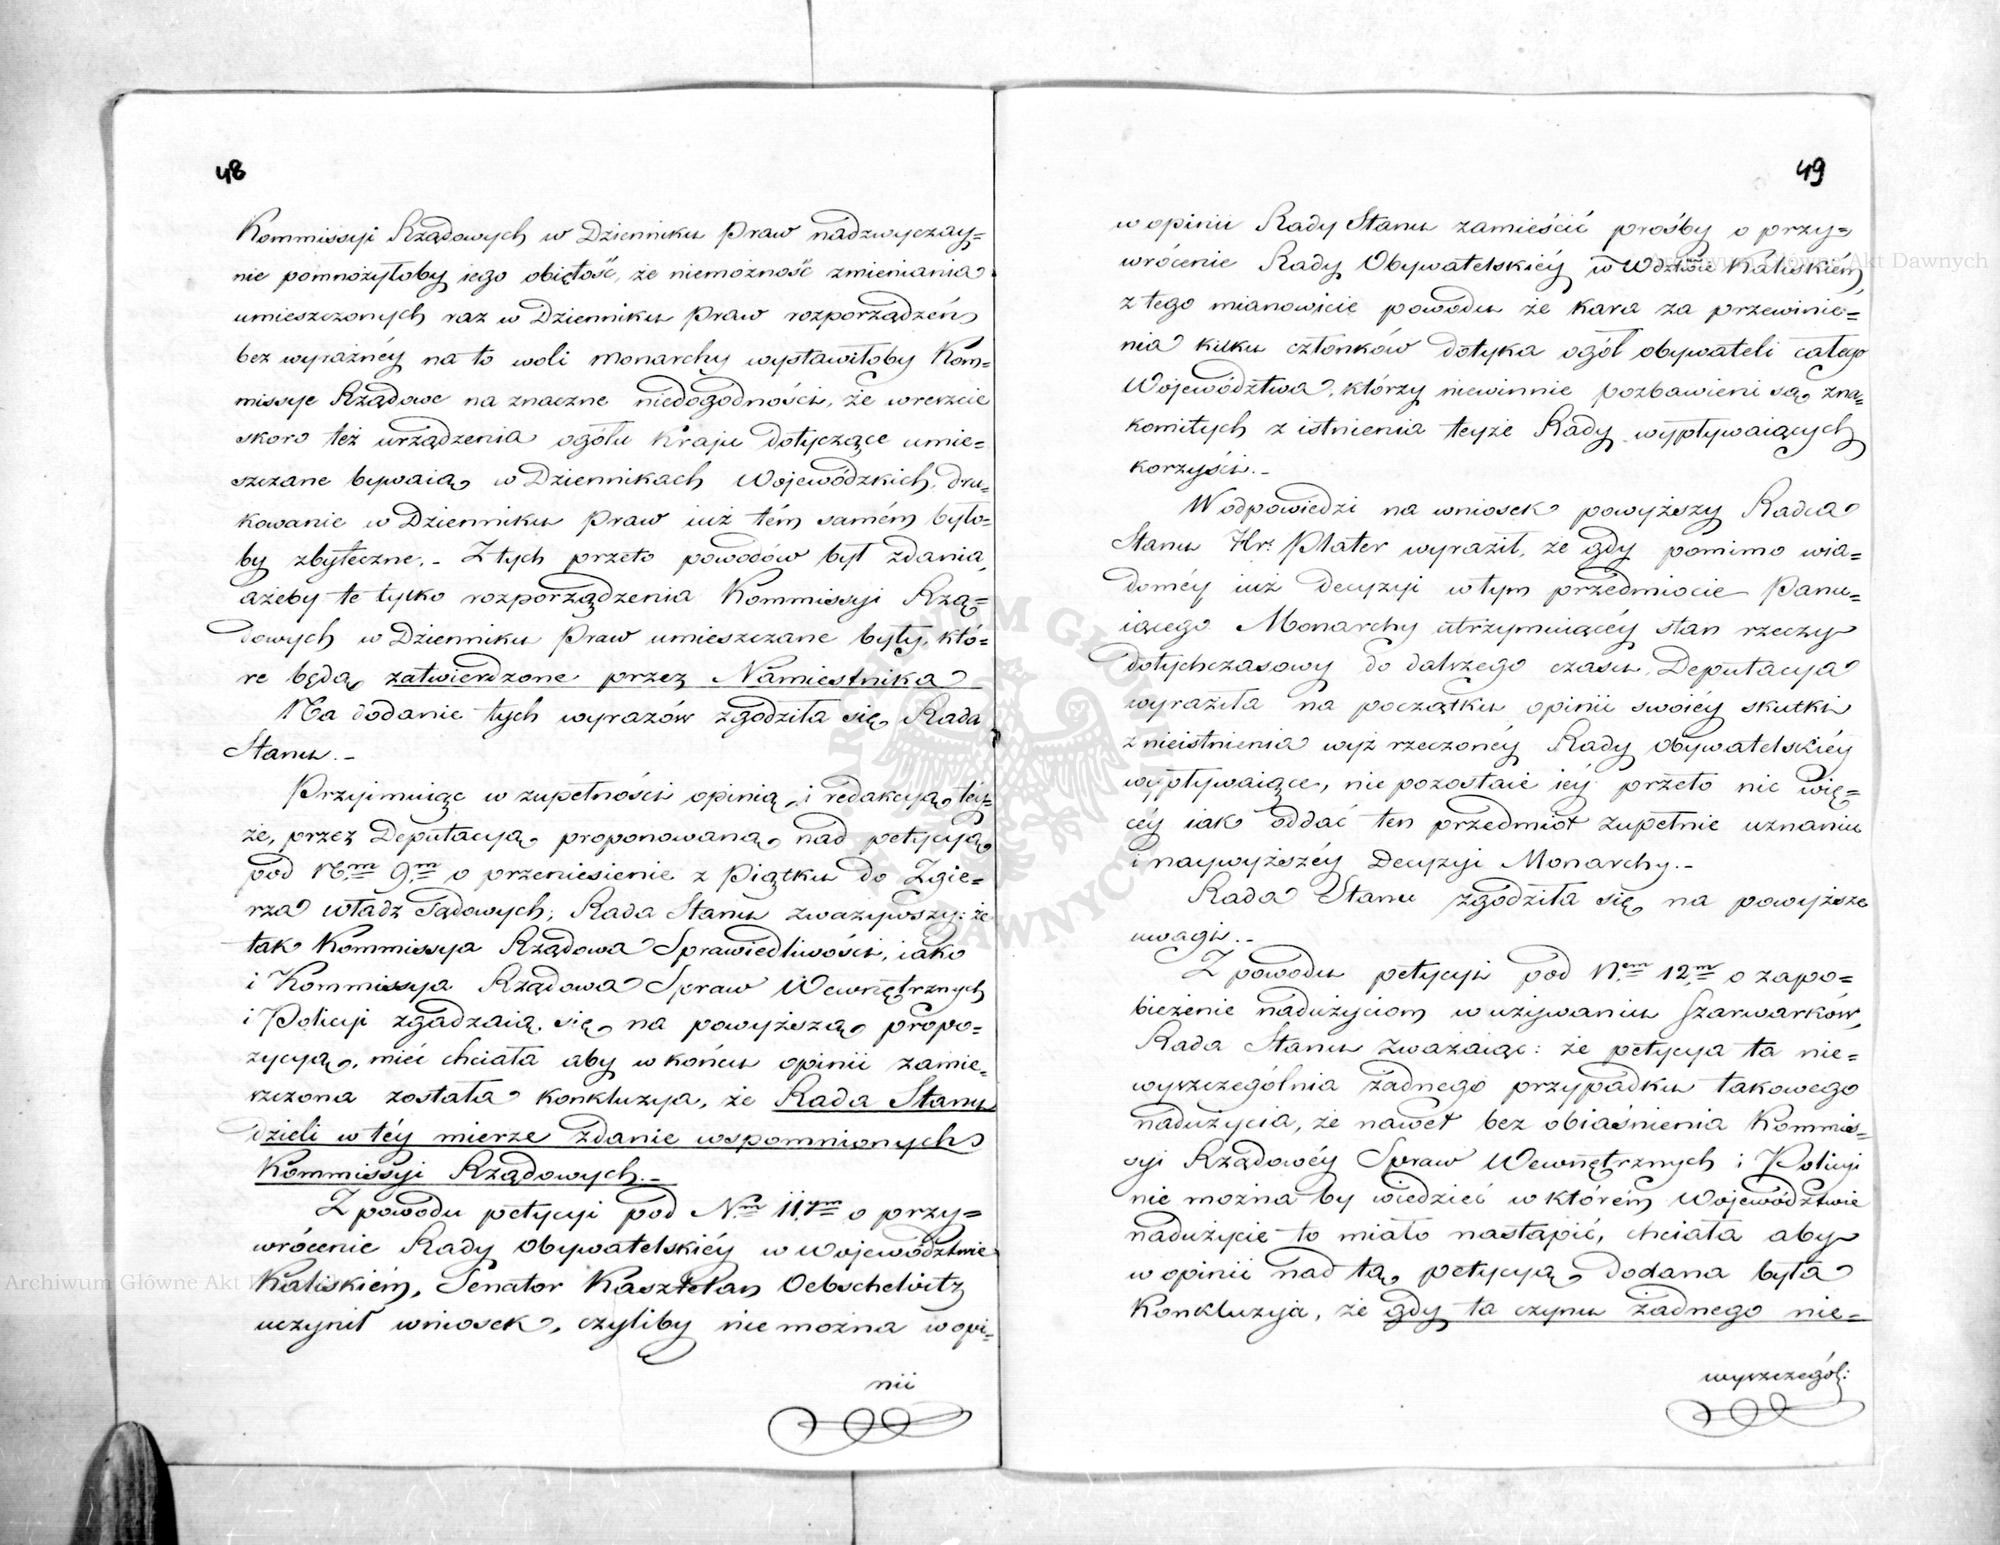 48
Kommissyi Rządowych w Dzienniku Praw nadzwyczay=
nie pomnożyłoby iego obiętość, że niemożność zmieniania
umieszczonych raz w Dzienniku Praw rozporządzeń
bez wyraźnéy na to woli Monarchy wystawiłoby Kom=
missye Rządowe na znaczne niedogodności, że wreszcie
skoro też urządzenia ogółu Kraju dotyczące umie=
szczane bywaią w Dziennikach Wojewódzkich, dru=
kowanie w Dzienniku Praw iuż tém samém było=
by zbyteczne. - Z tych przeto powodów był zdania,
ażeby te tylko rozporządzenia Kommissyi Rzą=
dowych w Dzienniku Praw umieszczane były, któ=
re będą zatwierdzone przez Namiestnika
Na dodanie tych wyrazów zgodziła się Rada
Stanu. -
Przyimuiąc w zupełności opinią i redakcyą téy=
że, przez Deputacyą proponowaną nad petycyą
pod Nm 9m o przeniesienie z Piątku do Zgie=
rza władz Sądowych; Rada Stanu zważywszy: że
tak Kommissya Rządowa Sprawiedliwości, iako
i Kommissya Rządowa Spraw Wewnętrznych
i Policyi zgadzaią się na powyższą propo=
zycyą, mieć chciała aby w końcu opinii zamie=
szczona została konkluzya, że Rada Stanu
dzieli w téy mierze zdanie wspomnionych
Kommissyi Rządowych. -
Z powodu petycyi pod Nm 11ym o przy=
wrócenie Rady Obywatelskiéy w Województwie
Kaliskiém, Senator Kasztelan Oebschelwitz
uczynił wniosek, czyliby nie można w opi=
nii
49
w opinii Rady Stanu zamieścić prośby o przy=
wrócenie Rady Obywatelskiéy w Wdztwie Kaliskiém
z tego mianowicie powodu że kara za przewinie=
nia kilku członków dotyka ogół obywateli całego
Województwa, którzy niewinnie pozbawieni są zna=
komitych z istnienia teyże Rady wypływaiących
korzyści. -
W odpowiedzi na wniosek powyższy Radca
Stanu Hr: Plater wyraził, że gdy pomimo wia=
doméy iuż Decyzyi w tym przedmiocie Panu=
iącego Monarchy utrzymuiącéy stan rzeczy
dotychczasowy do dalszego czasu, Deputacya
wyraziła na początku opinii swoiéy skutki
z nieistnienia wyż rzeczonéy Rady Obywatelskiéy
wypływaiące, nie pozostaie iéy przeto nic wię=
céy iak oddać ten przedmiot zupełnie uznaniu
i naywyższéy Decyzyi Monarchy. -
Rada Stanu zgodziła się na powyższe
uwagi. -
Z powodu petycyi pod Nem 12m o zapo=
bieżenie nadużyciom w używaniu Szarwarków,
Rada Stanu zważaiąc: że petycya ta nie=
wyszczególnia żadnego przypadku takowego
nadużycia, że nawet bez obiaśnienia Kommis=
syi Rządowéy Spraw Wewnętrznych i Policyi
nie można by wiedzieć w którém Województwie
nadużycie to miało nastąpić, chciała aby
w opinii nad tą petycyą dodana była
Konkluzya, że gdy ta czynu żadnego nie=
wyszczegól:
Archiwum Główne Akt Dawnych